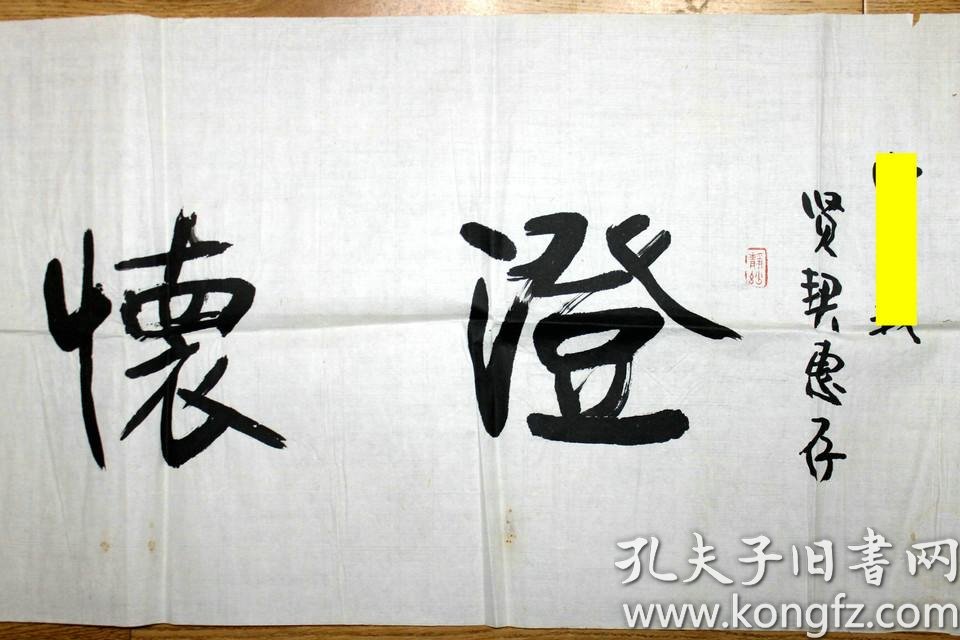 贤契惠存
静幽
澄懷
孔夫子旧書网
www.kongfz.com